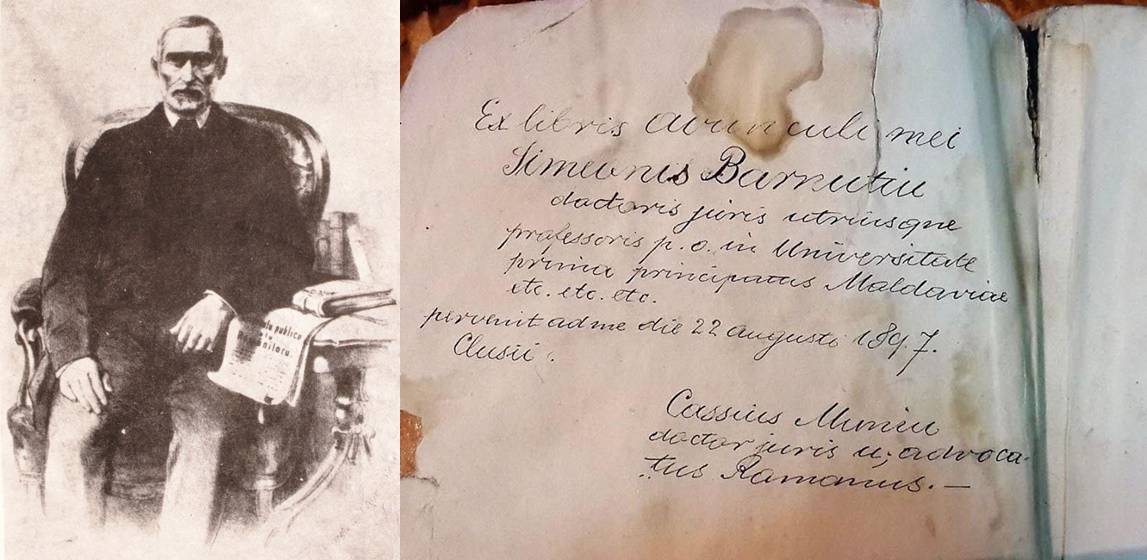 publicu
niloru.
Ex libris avunculi mei
Simeonis Barnutiu
doctoris juris utriusque
professoris p. o. in Universitate
prima principatus Moldaviae
etc. etc. etc.
pervenit ad me die 22 augusti 1897.
Clusii.
Cassius Maniu
doctor juris u; advoca-
tus Romanus. —